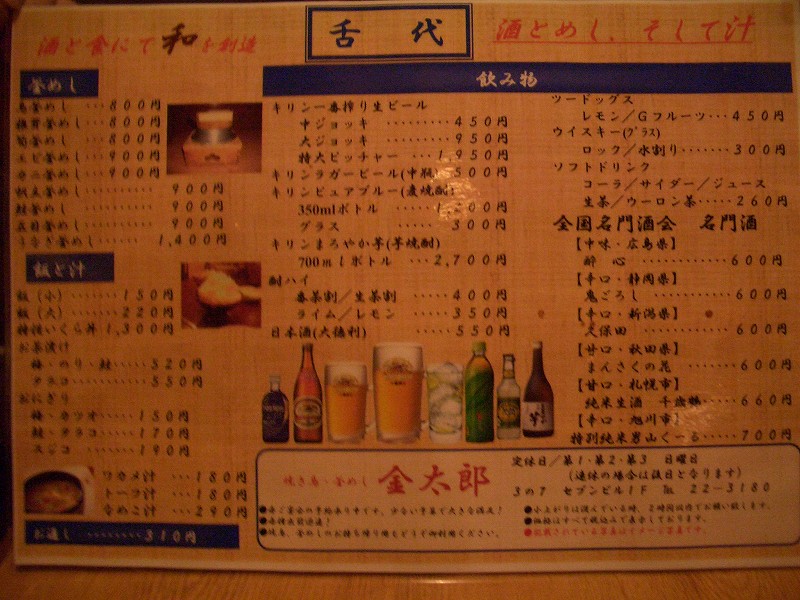 酒と食にて和を創造
舌代
酒とめし、そして汁
釜めし
鳥釜めし ・・・800円
釜めし ・・・800円
筍釜めし ・・・800円
エビ釜めし ・・・900円
カニ釜めし ・・・900円
帆立釜めし 900円
鮭釜めし 900円
五目釜めし 900円
うなぎ釜めし ・・・・1,400円
飯と汁
飯(小)・・・・・・・150円
飯(大)・・・・・・・220円
特積いくら丼 1,300円
お茶漬け
梅・のり・鮭・・・・・520円
タラコ・・・・・・・・550円
おにぎり
梅・カツオ・・・・・150円
鮭・タラコ・・・・・170円
スジコ・・・・・・190円
ワカメ汁 ・・・180円
トーフ汁 ・・・180円
なめこ汁 ・・・290円
お通し・・・・・・・・・310円
飲み物
キリン一番搾り生ビール
中ジョッキ ・・・・・・・・・450円
大ジョッキ ・・・・・・・・・950円
特大ピッチャー ・・・1,950円
キリンラガービール(中瓶) 500円
キリンピュアブルー(麦焼酎)
350mlボトル
グラス ・・・・・300円
キリンまろやか芋(芋焼酎)
700mlボトル ・・・2,700円
酎ハイ
番茶割/生茶割 ・・・・・400円
ライム/レモン ・・・・・350円
日本酒(大徳利) ・・・・・550円
ツードッグス
レモン/Gフルーツ・・・450円
ウイスキー(グラス)
ロック/水割り・・・・・・・300円
ソフトドリンク
コーラ/サイダー/ジュース
生茶/ウーロン茶・・・・・260円
全国名門酒会 名門酒
【中味・広島県】
酔心 ・・・・・・・・・・・・600円
【辛口・静岡県】
鬼ごろし ・・・・・・・・・・600円
【辛口・新潟県】
久保田 ・・・・・・・・・・600円
【甘口・秋田県】
まんさくの花 ・・・・・・・600円
【甘口・札幌市】
純米生酒 千歳鶴・・・・・660円
【辛口・旭川市】
特別純米男山くーる・・・・・700円
焼き鳥・釜めし 金太郎
定休日/第1・第2・第3 日曜日
(連休の場合は後日となります)
3の7 セブンビル1F ℡ 22-3180
●各ご宴会の予約承り中です。少ない予算で大きな満足!
●焼鳥、釜めしのお持ち帰り用もどうぞ御利用ください。
●小上がりは混んでいる時、2時間以内でお願い致します。
●価格はすべて税込みで表示しております。
●掲載されている写真はイメージ写真です。